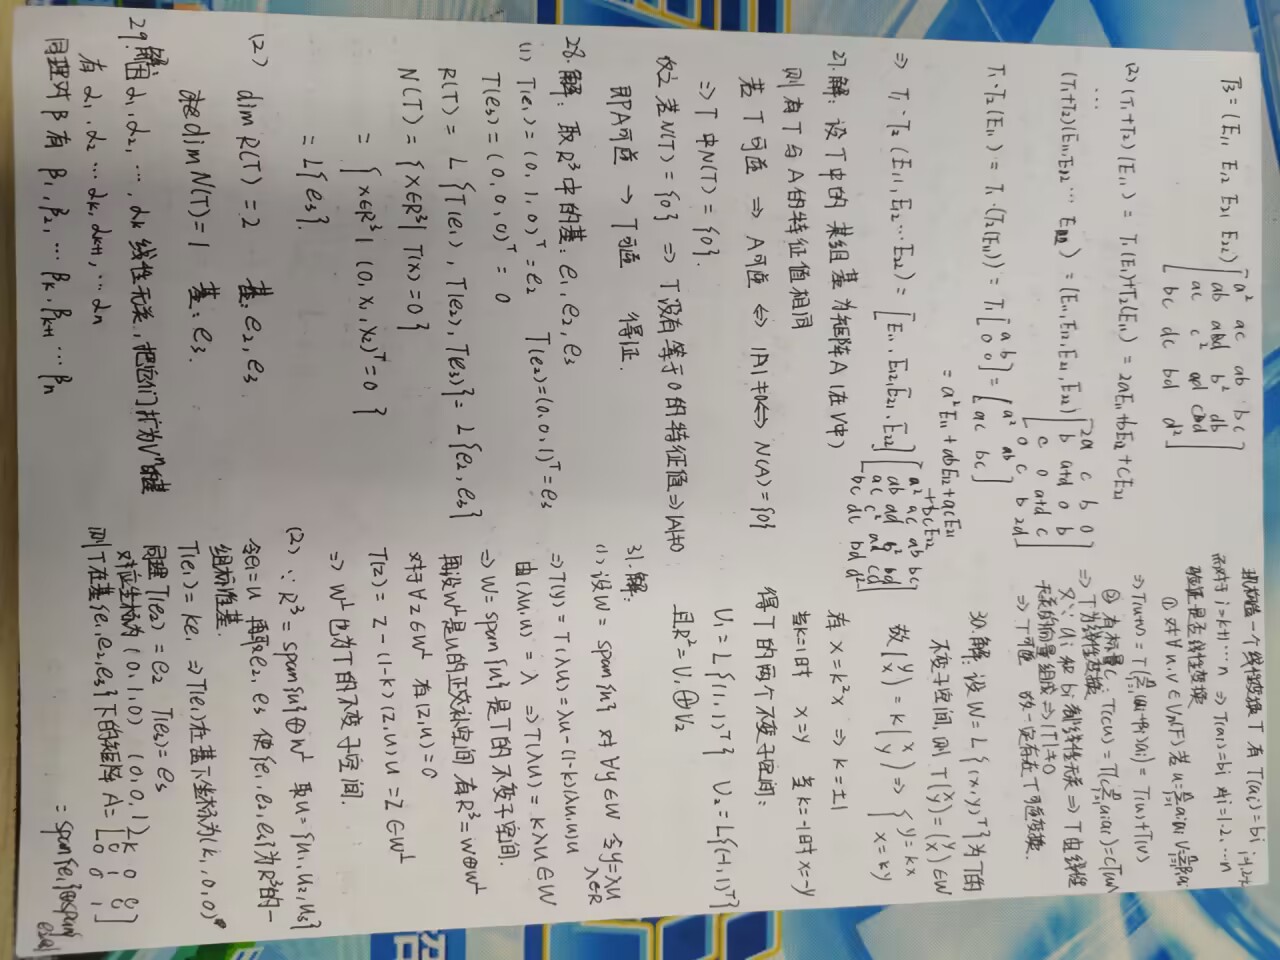 T3 = (E11 E12 E21 E22) [a² ac ab bc
ab ad b² db
ac c² ad cd
bc dc bd d²]
(2) (T1+T2)(E11) = T1(E11)+T2(E11) = 2aE11+bE12+cE21
...
(T1+T2)(E11 E12 ... E22) = (E11, E12, E21, E22) [2a c b 0
b a+d 0 b
c 0 a+d c
0 c b 2d]
T1·T2(E11) = T1·(T2(E11)) = T1[a b
0 0] = [a² ab
ac bc]
= a²E11 + abE12 + acE21
+bcE22
⇒ T1·T2(E11, E12 ... E22) = [E11, E12, E21, E22] [a² ac ab bc
ab ad b² bd
ac c² ad cd
bc dc bd d²]
27. 解: 设T中的某组基为矩阵A(在V中)
则有T与A的特征值相同
若T可逆 ⇒ A可逆 ⇔ |A|≠0 ⇔ N(A)={0}
⇒ T中N(T)={0}.
反之若N(T)={0} ⇒ T没有等于0的特征值 ⇒ |A|≠0
即A可逆 → T可逆 得证.
28. 解: 取R³中的基: e1, e2, e3
(1) T(e1)=(0,1,0)ᵀ=e2 T(e2)=(0,0,1)ᵀ=e3
T(e3)=(0,0,0)ᵀ=0
R(T)=L{T(e1), T(e2), T(e3)}=L{e2, e3}
N(T)={x∈R³| T(x)=0}
= {x∈R³| (0, x1, x2)ᵀ=0}
= L{e3}.
(2) dim R(T)=2 基: e2, e3
dim N(T)=1 基: e3.
29. 解: 因α1, α2, ..., αk 线性无关, 把它们扩为Vⁿ的基
有 α1, α2 ... αk, αk+1, ... αn
同理对β有 β1, β2, ... βk, βk+1 ... βn
现构造一个线性变换T 有 T(αi)=bi
而对于i=k+1 ... n ⇒ T(αi)=bi i=1·2...n
验证是否线性变换
① 对∀u, v∈Vn(F) 若
⇒ T(u+v) = = T(u)+T(v)
② 有标量c:
⇒ T为线性变换
又∵ ai 和 bi 都线性无关 ⇒ T由线性
无关的向量组成 ⇒ |T|≠0
⇒ T可逆 故一定存在T可逆变换.
30. 解: 设W=L{(x,y)ᵀ}为T的
不变子空间, 则 T(x y)=(y x)∈W
故(y x)=k(x y) ⇒ {y=kx
x=ky
有 x=k²x ⇒ k=±1
当k=1时 x=y 当k=-1时 x=-y
得T的两个不变子空间:
U1=L{(1,1)ᵀ} U2=L{(-1,1)ᵀ}
且R²=V1⊕V2
31. 解:
(1) 设W=span{u} 对∀y∈W 令y=λu
λ∈R
⇒ T(y)=T(λu)=λu-(1-k)(λu,u)u
由(λu,u)=λ ⇒ T(λu)=kλu∈W
⇒ W=span{u}是T的不变子空间.
再设W⊥是u的正交补空间 有R³=W⊕W⊥
对于∀z∈W⊥ 有(z,u)=0
T(z)=z-(1-k)(z,u)u=z∈W⊥
⇒ W⊥也为T的不变子空间.
(2) ∵ R³=span{u}⊕W⊥ 取u={u1,u2,u3}
令e1=u 再取e2, e3 使{e1, e2, e3}为R³的一
组标准基.
T(e1)=ke1 ⇒ T(e1)在基下坐标为(k,0,0)
同理T(e2)=e2 T(e3)=e3
对应坐标为(0,1,0) (0,0,1)
则T在基{e1,e2,e3}下的矩阵A=[k 0 0
0 1 0
0 0 1]